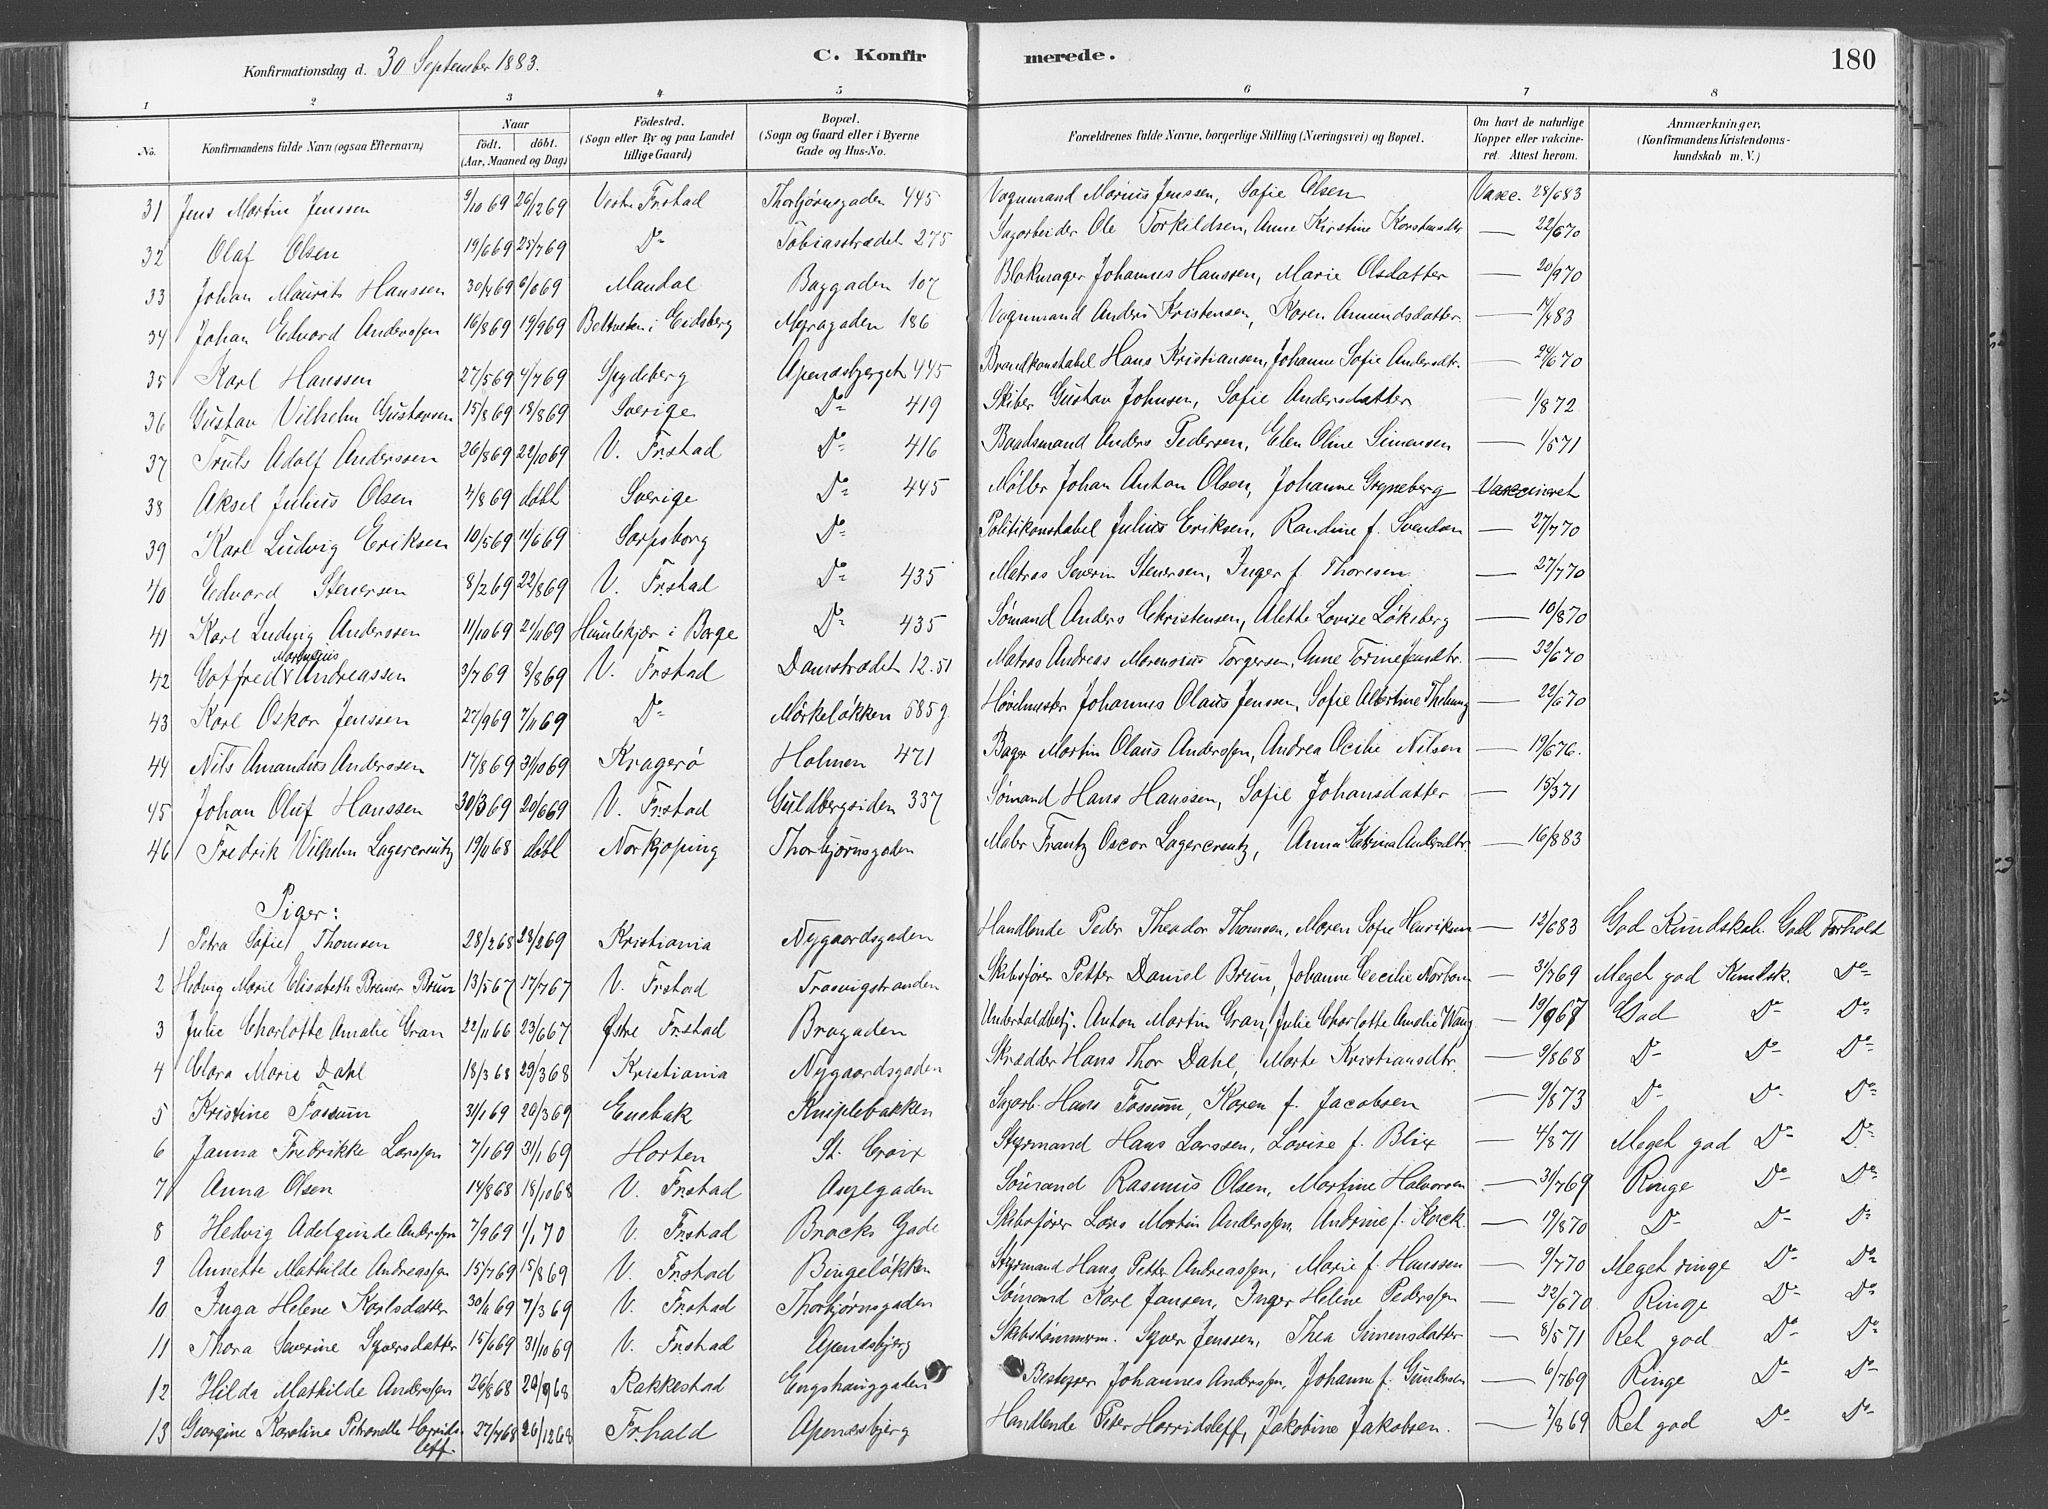 Konfirmationsdag d. 30 September 1883.
C. Konfirmerede.
180
1 2 3 4 5 6 7 8
No. | Konfirmandens fulde Navn (ogsaa Efternavn) | Naar født. døbt. (Aar, Maaned og Dag) | Fødested. (Sogn eller By og paa Landet tillige Gaard.) | Bopæl. (Sogn og Gaard eller i Byerne Gade og Hus-No. | Forældrenes fulde Navne, borgerlige Stilling (Næringsvei) og Bopæl. | Om havt de naturlige Kopper eller vakcineret. Attest herom. | Anmærkninger, (Konfirmandens Kristendomskundskab m. V.)
31 Jens Martin Jenssen 9/10 69 26/12 69 Vestre Frstad Thorbjørnsgaden 445 Vognmand Marius Jenssen, Sofie Olsen Vacc. 28/6 83
32 Olaf Olsen 19/6 69 25/7 69 Do Tobiasstrædet 275 Sagarbeider Ole Torkildsen, Anne Kirstine Karstensdtr — 22/6 70
33 Johan Maurits Hanssen 30/4 69 6/6 69 Mandal Baggaden 107 Blokmager Johannes Hanssen, Marie Olsdatter — 20/9 70
34 Johan Edvard Anderssen 16/8 69 19/9 69 i Eidsberg 186 Vognmand Anders Kristensen, Karen Amundsdatter — 17/4 83
35 Karl Hanssen 27/5 69 4/7 69 Spydeberg Apenæsbjerget 445 Brandkonstabel Hans Kristiansen, Johanne Sofie Andersdtr. — 24/6 70
36 Gustav Vilhelm Gustavsen 15/8 69 18/8 69 Sverige Do 419 Skiber Gustav Johnsen, Sofie Andersdatter — 1/8 72
37 Truls Adolf Anderssen 26/8 69 22/10 69 V. Frstad Do 416 Baadsmand Anders Pedersen, Elen Oline Simensen — 1/5 71
38 Aksel Julius Olsen 4/8 69 døbt Sverige Do 445 Møller Johan Anton Olsen, Johanne Gryneberg Vaccineret
39 Karl Ludvig Eriksen 10/5 69 11/6 69 Sarpsborg Do Politikonstabel Julius Eriksen, Randine f. Svendsen — 27/7 70
40 Edvard Stenersen 8/2 69 22/8 69 V. Frstad Do 435 Matros Severin Stenersen, Inger f. Thoresen — 27/7 70
41 Karl Ludvig Anderssen 11/10 69 21/11 69 Humlekjær i Borge Do 435 Sømand Anders Christensen, Alette Lovise Løkeberg — 10/8 70
42 Gotfred Marensius Andreassen 3/7 69 8/8 69 V. Frstad Damstrædet 12.51 Matros Andreas Marensius Torgersen, Anne Torine Jensdtr. — 22/6 70
43 Karl Oskar Jenssen 27/9 69 7/11 69 Do Mørkeløkken 585 g Høvlmester Johannes Olaus Jenssen, Sofie Albertine — 22/6 70
44 Nils Amandus Anderssen 17/8 69 31/10 69 Kragerø Holmen 471 Bager Martin Olaus Anderssen, Andrea Ocilie Nilsen — 19/6 76.
45 Johan Oluf Hanssen 30/3 69 20/6 69 V. Frstad Guldbergsiden 337 Sømand Hans Hanssen, Sofie Johansdatter — 15/3 71
46 Fredrik Vilhelm Lagercreutz 19/11 68 døbt Norkjøping Thorbjørnsgaden Maler Frantz Oscar Lagercreutz, Anna Katrina Andersdtr — 16/8 83
Piger:
1 Petra Sofie Thomsen 28/2 68 28/2 69 Kristiania Nygaardsgaden Handlende Peder Theodor Thomsen, Maren Sofie Henriksen — 12/6 83 God Kundskab. Godt Forhold
2 Hedvig Marie Elisabeth Bremer Brun 13/5 67 17/7 67 V. Frstad Trosvigstranden Skibsfører Petter Daniel Brun, Johanne Cecilie Norbom — 31/7 69 Meget god Kundsk. Do
3 Julie Charlotte Amalie Gran 22/11 66 23/6 67 Østre Frstad Brogaden Undertoldbetj. Anton Martin Gran, Julie Charlotte Amalie Wang — 19/9 67 God Do Do
4 Clara Marie Dahl 18/3 68 29/3 68 Kristiania Nygaardsgaden Skrædder Hans Thor Dahl, Marte Kristiansdtr. — 9/8 68 Do Do Do
5 Kristine Fossum 31/1 69 20/3 69 Enebak Kniplebakken Sagarb. Hans Fossum, Karen f. Jacobsen — 9/8 73 Do Do Do
6 Janna Fredrikke Larssen 7/1 69 31/1 69 Horten St. Croix Styrmand Hans Larssen, Lovise f. Blix — 4/8 71 Meget god Do Do
7 Anna Olsen 14/8 68 18/10 68 V. Frstad Asylgaden Sømand Rasmus Olsen, Martine Halvorsen — 31/7 69 Ringe Do Do
8 Hedvig Adelgunde Anderssen 7/9 69 1/1 70 V. Frstad Brocks Gade Skibsfører Lars Martin Anderssen, Andrine f. Kock — 19/8 70 Do Do Do
9 Annette Mathilde Andreassen 15/7 69 15/8 69 V. Frstad Bingeløkken Styrmand Hans Petter Andreassen, Marie f. Hanssen — 9/7 70 Meget ringe Do Do
10 Inga Helene Karlsdatter 30/11 69 7/3 69 V. Frstad Thorbjørnsgaden Sømand Karl Jansen, Inger Helene Pederssen — 22/6 70 Ringe Do Do
11 Thora Severine Syversdatter 15/6 69 31/10 69 V. Frstad Apenæsbjerg Skibstømmerm. Syver Jenssen, Thea Simensdatter — 8/5 71 Ret god Do Do
12 Hilda Mathilde Anderssen 26/8 68 20/9 68 Rakkestad Engehauggaden Bestyrer Johannes Anderssen, Johanne f. Gundersen — 6/7 69 Ringe Do Do
13 Georgine Karoline Petronelle Horridsleff. 27/7 68 26/12 68 Fr.hald Apenæsbjerg Handlende Peter Horridsleff, Jakobine Jakobsen. — 7/8 69 Ret god Do Do